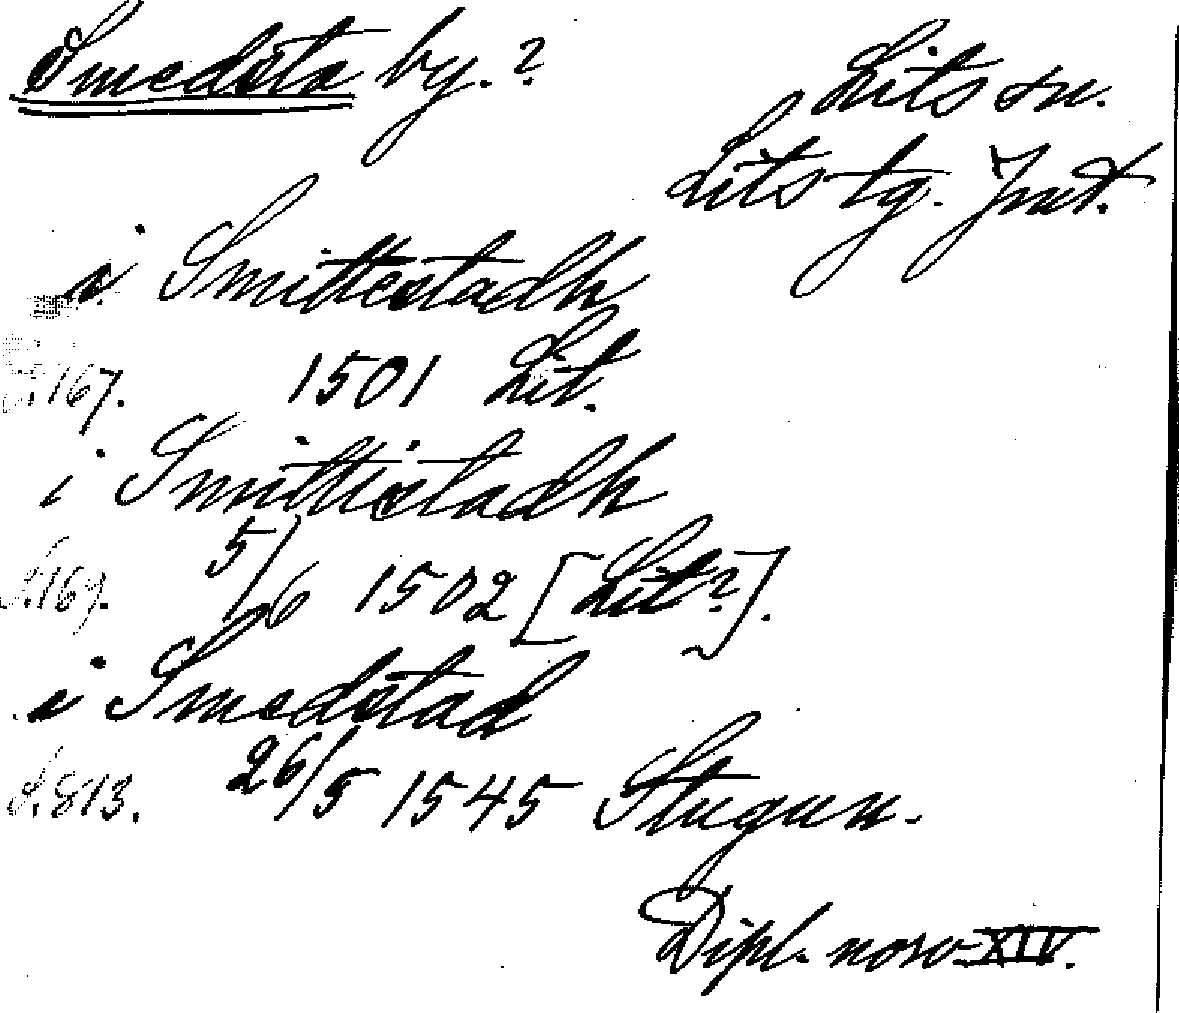 Smedsta by.?
Lits sn.
Lits tg. Jmt.
i Smittestadh
S.167. 1501 Lit.
i Smittistadh
S.169. 5/6 1502 [Lit?].
i Smedstad
S.813. 26/5 1545 Stugun.
Dipl. norv. XIV.